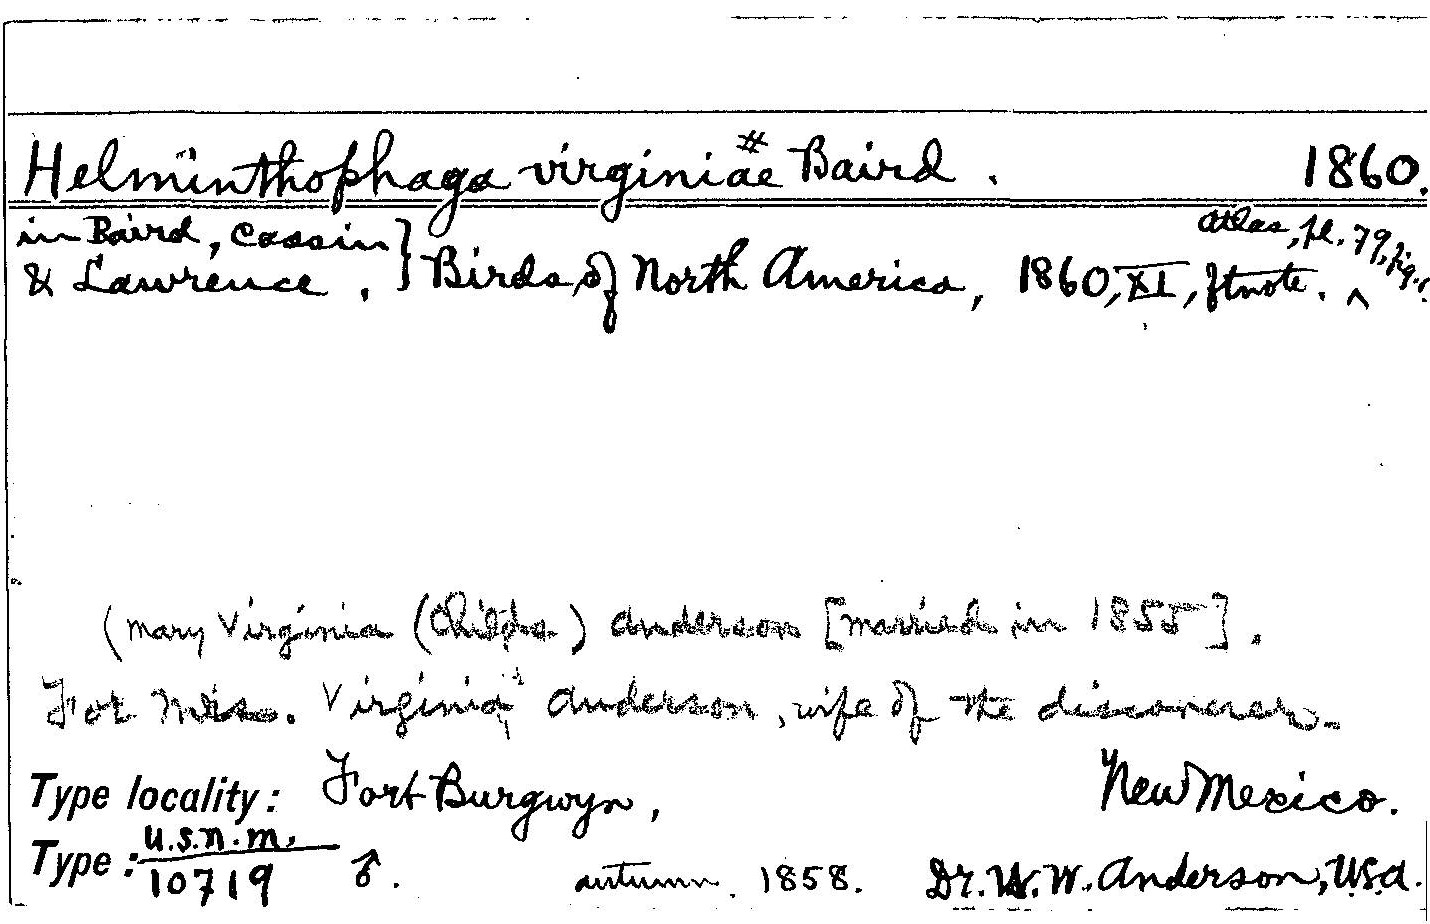 Helminthophaga virginiae # Baird. 1860.
in Baird, Cassin } atlas, pl. 79, fig. 1.
& Lawrence. } Birds of North America, 1860, XI, ftnote. ^
(Mary Virginia (Childs) Anderson [married in 1855].
For Mrs. Virginia Anderson, wife of the discoverer.
Type locality: Fort Burgwyn, New Mexico.
Type: U.S.N.M.
10719 ♂. autumn. 1858. Dr. W. W. Anderson, U.S.A.